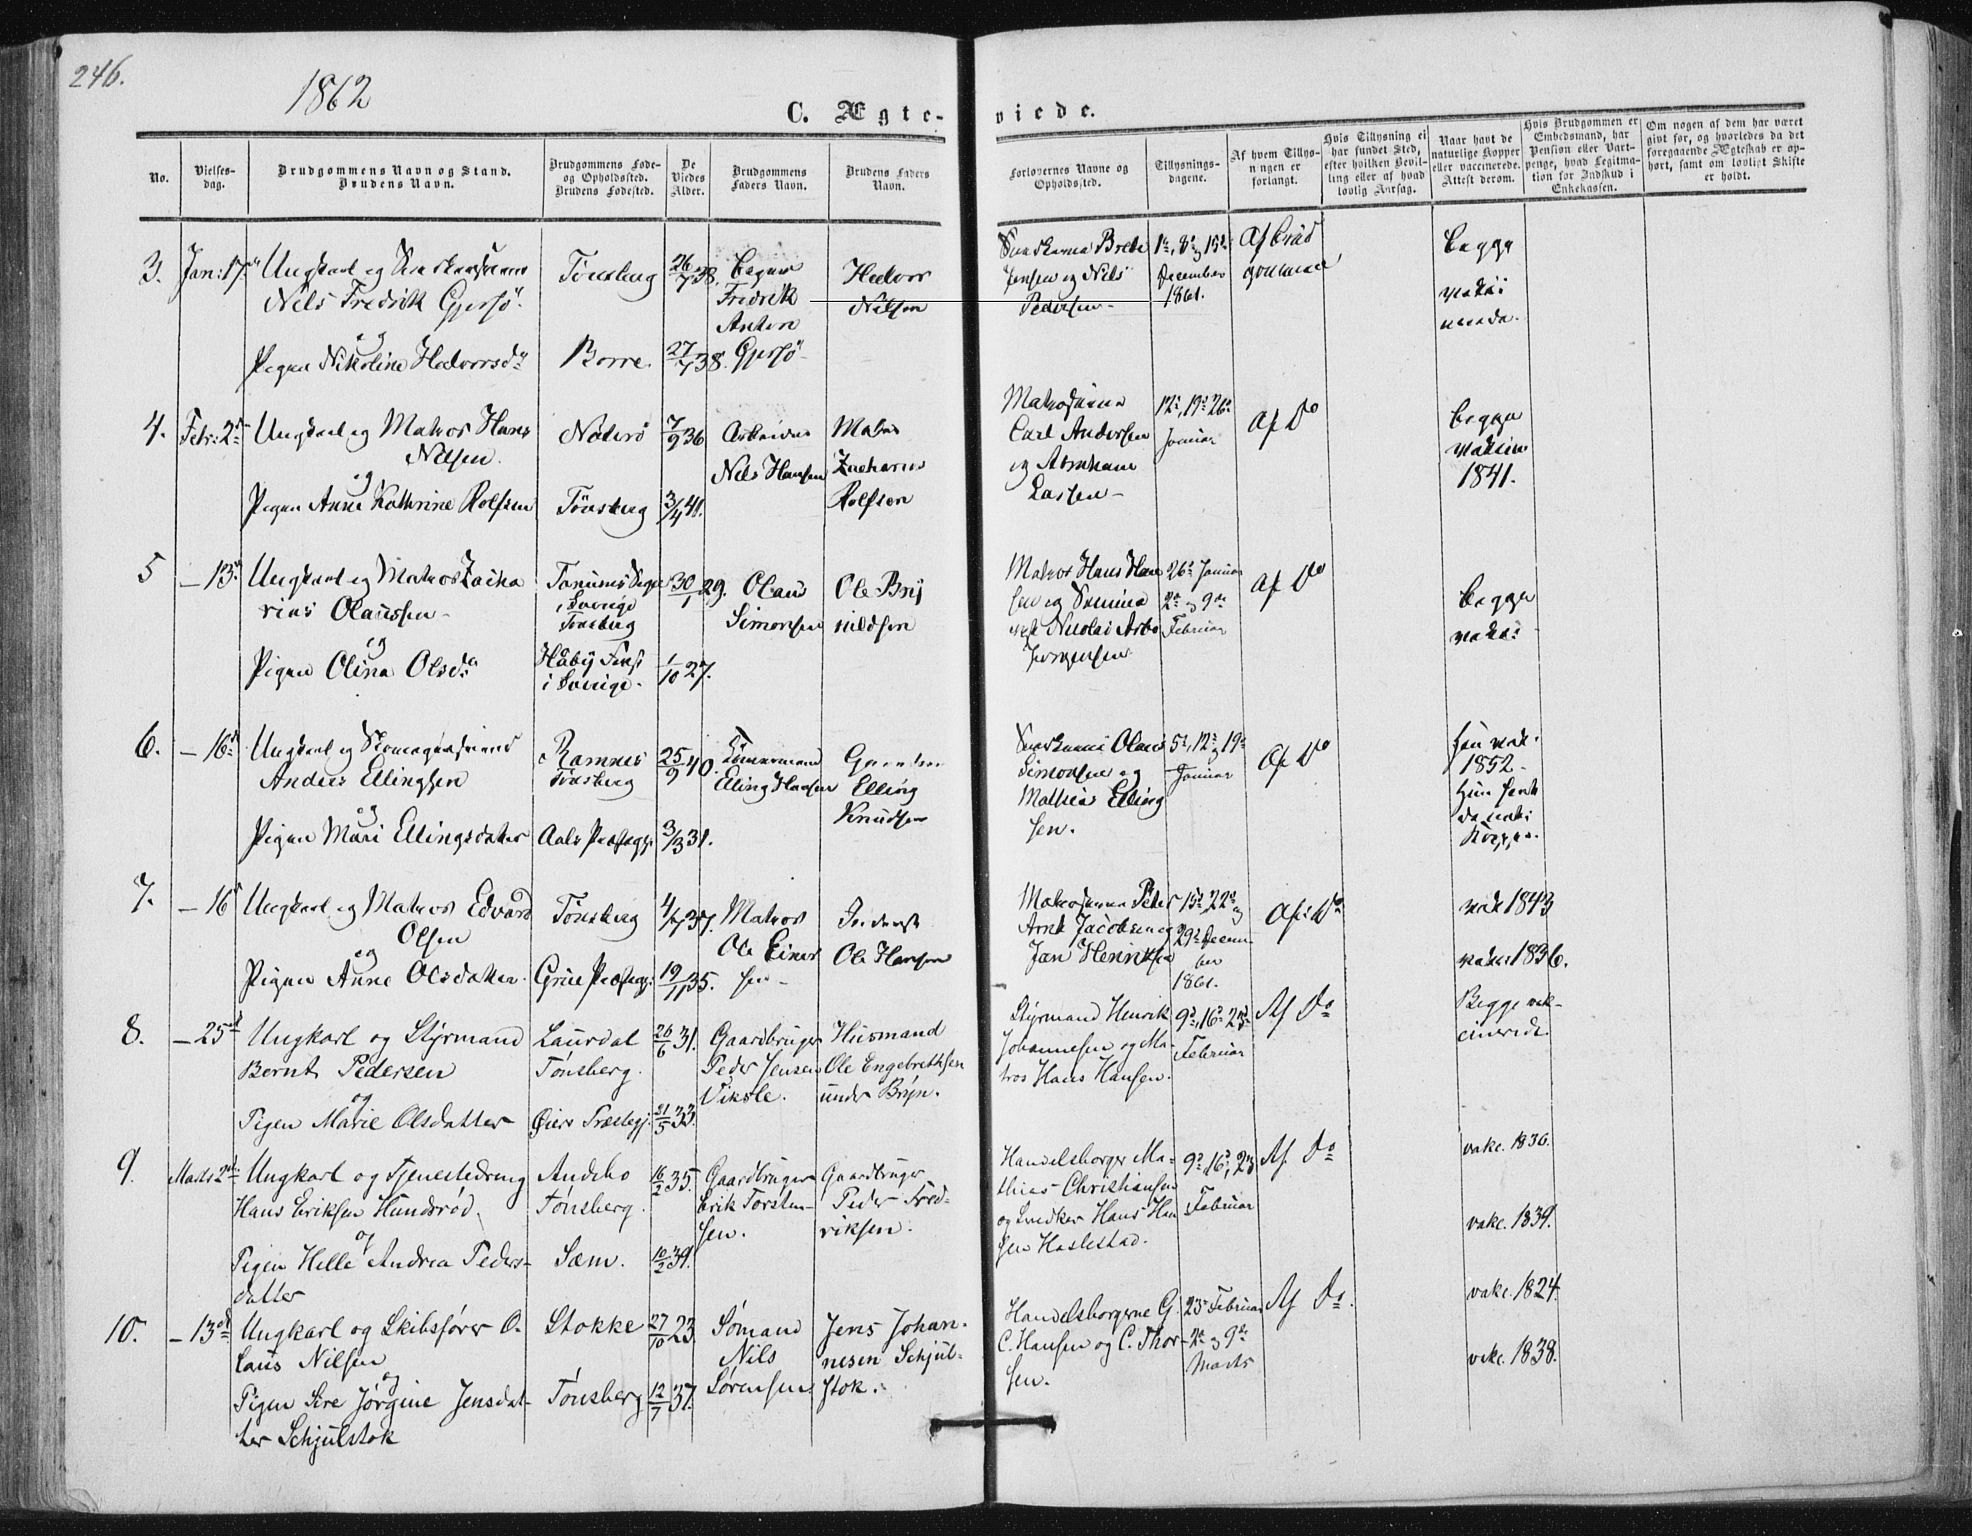 246.
1862
C. Ægte-
viede.
No.
Vielses-
dag.
Brudgommens Navn og Stand.
Brudens Navn.
Brudgommens Føde-
og Opholdssted.
Brudens Fødested.
De
Viedes
Alder.
Brudgommens
Faders Navn.
Brudens Faders
Navn.
Forlovernes Navne og
Opholdssted.
Tillysnings-
dagene.
Af hvem Tillys-
ningen er
forlangt.
Hvis Tillysning ei
har fundet Sted,
efter hvilken Bevil-
ling eller af hvad
lovlig Aarsag.
Naar havt de
naturlige Kopper
eller vaccinerede.
Attest derom.
Hvis Brudgommen er
Embedsmand, har
Pension eller Vart-
penge, hvad Legitima-
tion for Indskud i
Enkekassen.
Om nogen af dem har været
gift før, og hvorledes da det
foregaaende Ægteskab er op-
hørt, samt om lovligt Skifte
er holdt.
3. Jan: 17. Ungkarl og
Nils Fredrik Gjersö
og
Pigen Nikoline Hedvorsd.
Tönsberg 26/7 38.
Borre. 27/7 38.
Fredrik
Anton
Gjersö
Nilsen
Jensen og Nils
Pedersen
1ste, 8de og 15de
December
1861.
Af Brud
gommen
begge
4. Febr: 2den Ungkarl og Matros Hans
Nilsen
og
Pigen Anne Kathrine Rolfsen
Nöterö 7/9 36
Tönsberg 3/4 41.
Arbeider
Nils Hansen
Zacharias
Rolfsen
Carl Andersen
og Abraham
Larsen
12te, 19de 26de
Januar
Af Do
begge
1841.
5 – 13. Ungkarl og Matros Zacha
rias Olaussen
og
Pigen Olina Olsd.
Tanums
i Sverige
Tönsberg
30/1 29.
Håby
i Sverige. 1/10 27.
Olaus
Simonsen
Ole Bryn
nildsen
Matros Hans Han
sen og
Nicolai Arbo
Jörgensen
26de Januar
2den og 9de
Februar
Af Do
begge
6. – 16de Ungkarl og
Anders Ellingsen
og
Pigen Mari Ellingsdatter
Ramnes
Tönsberg
25/9 40.
Aals Præstegj. 3/3 31.
Tömmermand
Elling Hansen
Elling
Knudsen
Olaus
Simonsen og
Mathias Elling
sen.
5te, 12te og 19de
Januar
Af Do
1852
7. – 16 Ungkarl og Matros Edvard
Olsen
og
Pigen Anne Olsdatter
Tönsberg 4/7 37.
Grue Præstegj. 19/11 35.
Matros
Ole Einer
sen
Ole Hansen
Peter
Arnt Jacobsen og
Jan Henriksen
15de, 22de og
29de Decem-
ber
1861.
Af Do
vak 1843
vak. 1836.
8. – 25de Ungkarl og Styrmand
Bernt Pedersen
og
Pigen Marie Olsdatter
Laurdal
Tønsberg.
26/6 31.
Øiers Præstegj. 21/5 33.
Gaardbruger
Peder Jensen
Viksle.
Husmand
Ole Engebrethsen
under Bryn.
Styrmand Henrik
Johannesen og Ma-
tros Hans Hansen.
9de, 16de 23de
Februar
Af Do
Begge vak-
cinerede.
9. Marts 2den Ungkarl og Tjenestedreng
Hans Eriksen Hundsrød.
og
Pigen Helle Andrea Peders-
datter
Andebo
Tønsberg.
16/2 35.
Sæm. 10/2 39.
Gaardbruger
Erik Torsten-
sen.
Gaardbruger
Peder Fred-
riksen.
Handelsborger Ma-
thias Christiansen
og Snedker Hans Han
sen Haslestad.
9de, 16de, 23
Februar
Af Do
vakc. 1836.
vakc. 1839.
10. – 13de Ungkarl og Skibsfører O-
laus Nilsen
og
Pigen Sire Jørgine Jensdat-
ter Schjulstok
Stokke 27/10 23.
Tønsberg 12/7 37.
Sømand
Nils
Sørensen
Jens Johan-
nesen Schjul-
stok.
Handelsborgerne G.
C. Hansen og C. Thor-
sen.
23de Februar
2den og 9de
Marts
Af Do.
vakc. 1824.
vakc. 1838.